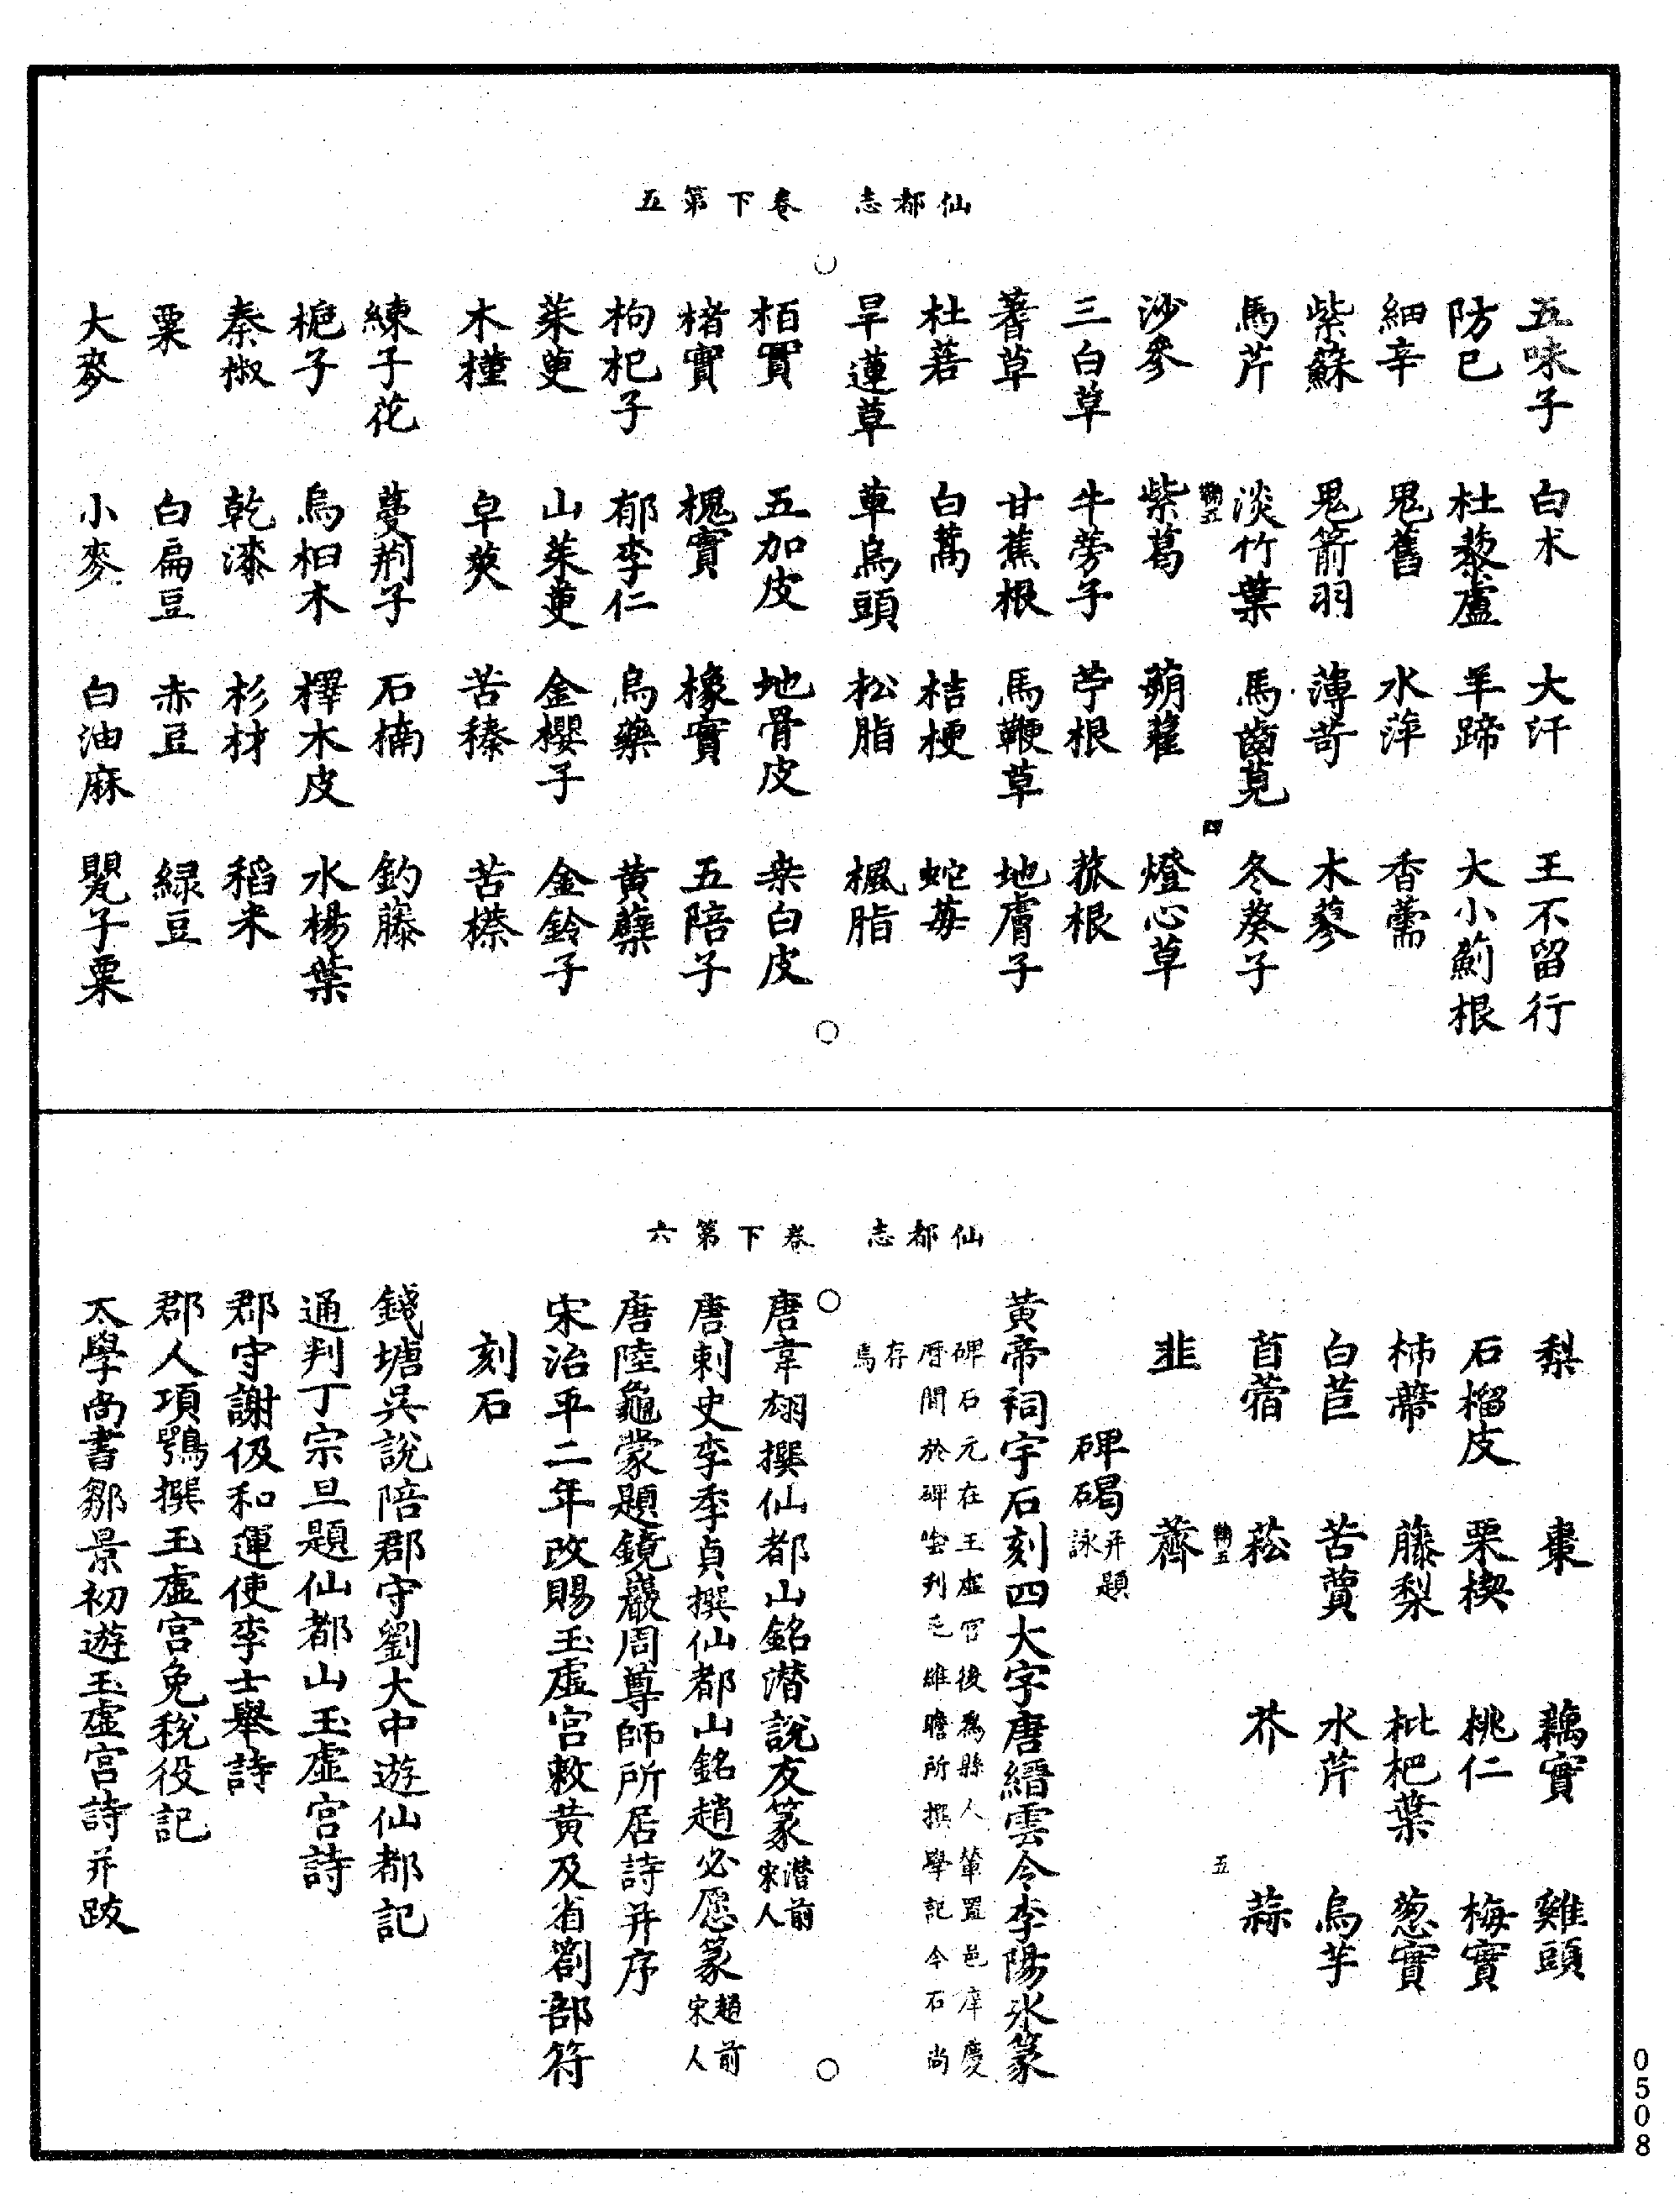 仙都志　卷下第五
五味子　白朮　大汗　王不留行
防已　杜藜蘆　羊蹄　大小薊根
細辛　鬼舊　水萍　香薷
紫蘇　鬼箭羽　薄苛　木蓼
馬芹　淡竹葉　馬齒莧　冬葵子
沙參　紫葛　蒴藋　燈心草
三白草　牛蒡子　苧根　菰根
蓍草　甘蕉根　馬鞭草　地膚子
杜若　白蒿　桔梗　蛇苺
旱蓮草　草烏頭　松脂　楓脂
栢實　五加皮　地骨皮　桑白皮
楮實　槐實　橡實　五陪子
枸杞子　郁李仁　烏藥　黃蘗
茱萸　山茱萸　金櫻子　金鈴子
木槿　皁莢　苦㯤　苦檫
練子花　蔓荊子　石楠　釣藤
梔子　烏桕木　檡木皮　水楊葉
秦椒　乾漆　杉材　稻米
粟　白扁豆　赤豆　緑豆
大麥　小麥　白油麻　甖子粟
仙都志　卷下第六
梨　棗　藕實　雞頭
石榴皮　栗楔　桃仁　梅實
柿蔕　藤梨　枇杷葉　葱實
白苣　苦蕒　水芹　烏芋
苜蓿　菘　芥　蒜
五
韭　薺
碑碣并題詠
黃帝祠宇石刻四大字唐縉雲令李陽冰篆
碑石元在玉虛宮後爲縣人輦置邑庠慶
曆間於碑陰刋毛維瞻所撰學記今石尚
存
焉
唐韋翃撰仙都山銘潛說友篆潛前宋人
唐刺史李季貞撰仙都山銘趙必愿篆趙前宋人
唐陸龜蒙題鏡巖周尊師所居詩并序
宋治平二年改賜玉虛宮敕黃及省劄部符
刻石
錢塘吳說陪郡守劉大中遊仙都記
通判丁宗旦題仙都山玉虛宮詩
郡守謝伋和運使李士舉詩
郡人項鶚撰玉虛宮免稅役記
太學尚書鄒景初遊玉虛宮詩并跋
0508